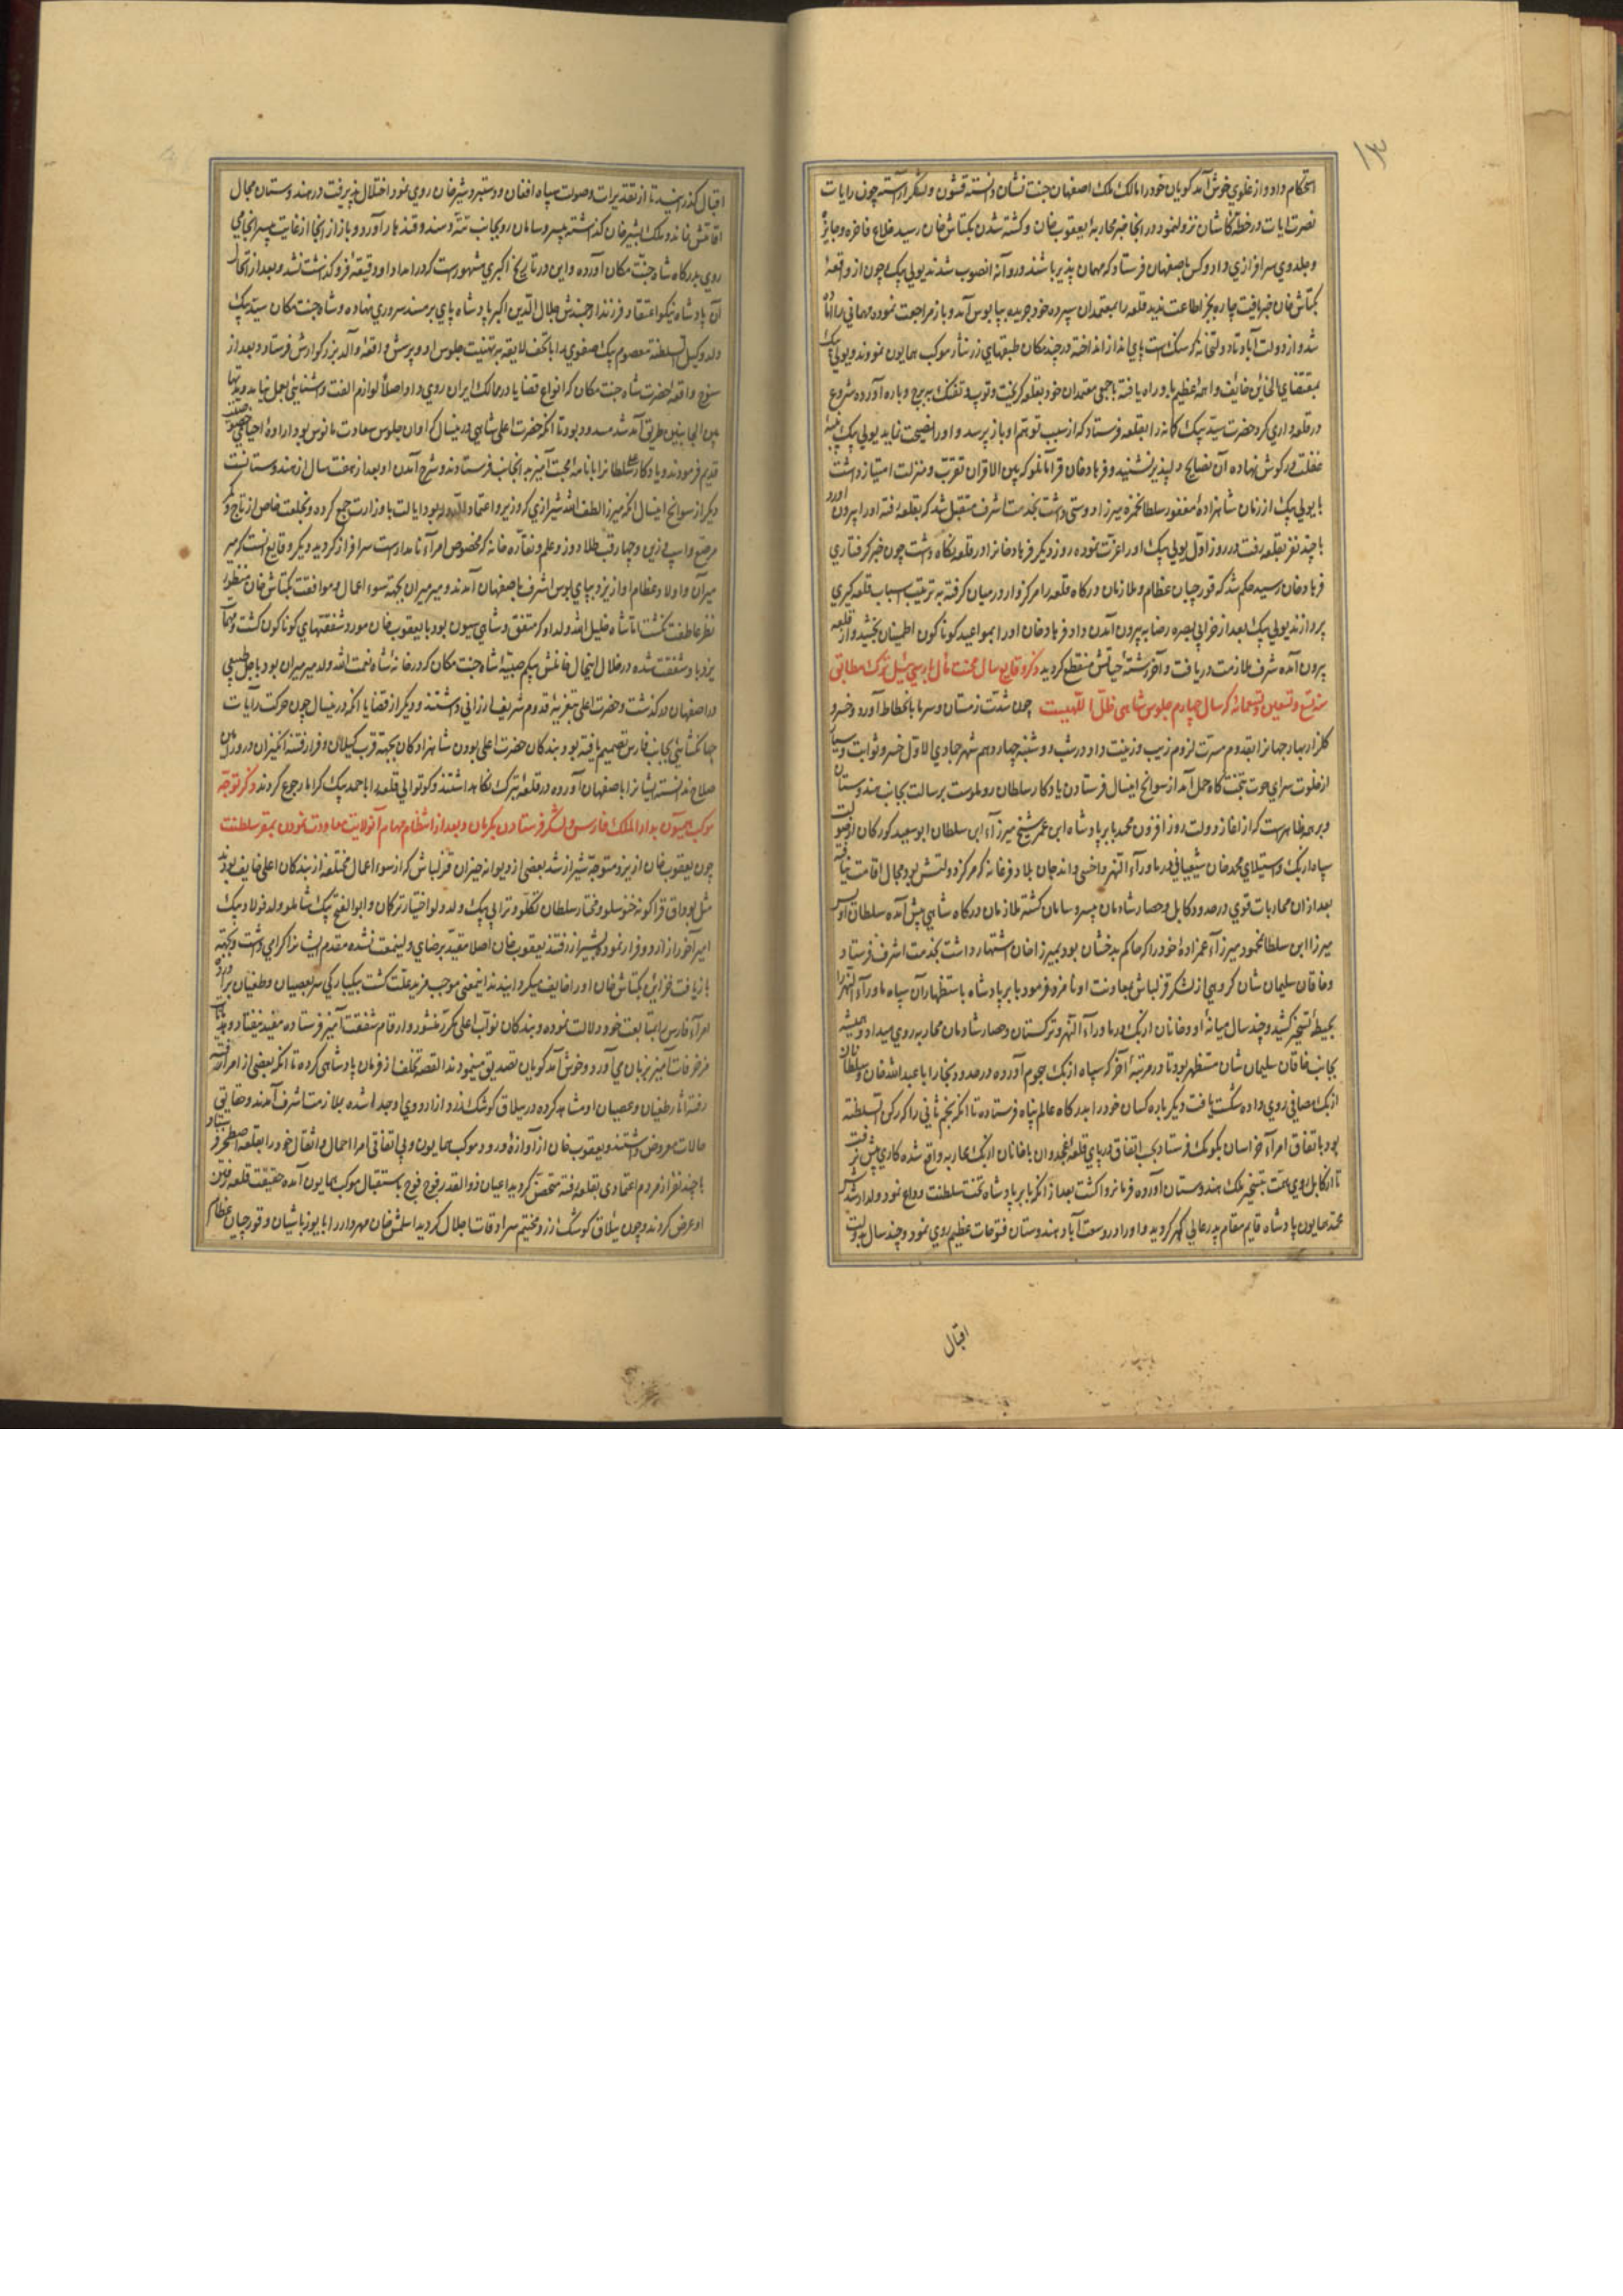 ۱۳
استحکام داد و از غلوی خوش آمد گویان خود را مالک ملک اصفهان جنت نشان دانسته قشون و لشکر آراسته چون رایات
نصرت آیات در خطه کاشان نزول نمود در انجا خبر محاربه یعقوب خان و کشته شدن بکتاش خان رسید خلاع فاخره و جایزه
و جلدوی سرافرازی داد و کس باصفهان فرستاد که مهمان پذیر باشند و روانه انصوب شدند یولی بیک چون از واقعه
بکتاش خان خبر یافت چاره بجز اطاعت ندید قلعه را بمعتمدان سپرده خود جریده بپابوس آمد و باز مراجعت نموده مهمانی را آماده
شد و از دولت آباد تا دولتخانه که سنگ است پای انداز انداخته در چند مکان طبقهای زر نثار موکب همایون نمودند و یولی بیک
بمقتضای الخائن خائف واهمه عظیم باو راه یافته با جمعی معتمدان خود بقلعه گریخت و توپ و تفنگ ببرج و باره آورده شروع
در قلعه داری کرد حضرت سید بیک کمانه را بقلعه فرستاد که از سبب توهم او باز پرسد و او را نصیحت نماید یولی بیک پنبه
غفلت در گوش نهاده آن نصایح دلپذیر نشنید و فرهاد خان قرامانلو که بین الاقران تقرب و منزلت امتیاز داشت
با یولی بیک از زمان شاهزاده مغفور سلطان حمزه میرزا دوستی داشت بخدمت اشرف متقبل شد که بقلعه رفته او را بیرون آورد
با چند نفر بقلعه رفت در روز اول یولی بیک او را عزت نموده روز دیگر فرهاد خان را در قلعه نگاه داشت چون خبر گرفتاری
فرهاد خان رسید حکم شد که قورچیان عظام و ملازمان درگاه قلعه را مرکزوار در میان گرفته به ترتیب اسباب قلعه گیری
پردازند یولی بیک بعد از خرابی بصره رضا به بیرون آمدن داد فرهاد خان او را بمواعید گوناگون اطمینان بخشید و از قلعه
بیرون آمده شرف ملازمت دریافت و آخر رشته حیاتش منقطع گردید ذکر وقایع سال محنت مآل بارس ئیل ترک مطابق
سنه تسع و تسعین و تسعمائه که سال چهارم جلوس شاهی ظل اللهیست چون شدت زمستان و سرما بانحطاط آورد و خسرو
گلزار بهار جهان را بقدوم مسرت لزوم زیب و زینت داد در شب دوشنبه چهاردهم شهر جمادی الاول خسرو ثوابت و سیار
از خلوت سرای حوت بتختگاه حمل آمد از سوانح اینسال فرستادن یادگار سلطان روملوست برسالت بجانب هندوستان
و بر همه ظاهرست که از اغاز دولت روز افزون محمد بابر پادشاه ابن عمر شیخ میرزاء ابن سلطان ابو سعید گورکان از صولت
سپاه ازبک و استیلای محمد خان شیبانی در ماوراء النهر و اخسی و اندجان بلاد فرغانه که مرکز دولتش بود مجال اقامت نیافته
بعد از ان محاربات قوی در حدود کابل و حصار شادمان بیسر و سامان گشته ملازمان درگاه شاهی پیش آمده سلطان اویس
میرزا ابن سلطان محمود میرزاء عمزاده خود را که حاکم بدخشان بود بمیرزا خان اشتهار داشت بخدمت اشرف فرستاد
و خاقان سلیمان شان گروهی از لشکر قزلباش بمعاونت او نامزد فرمود بابر پادشاه باستظهار آن سپاه ماوراء النهر را
بحیطه تسخیر کشید و چند سال میانه او و خانان ازبک در ماوراء النهر و ترکستان و حصار شادمان محاربه روی میداد و همیشه
بجانب خاقان سلیمان شان مستظهر بود تا در مرتبه آخر که سپاه ازبک هجوم آورده در حدود بخارا با عبدالله خان و سلطانان
ازبک مصافی روی داده شکست یافت دیگر باره کسان خود را بدرگاه عالم پناه فرستاده تا آنکه نجم ثانی را که رکن السلطنه
بود باتفاق امراء خراسان بکومک فرستاد بی اتفاق در پای قلعه غجدوان با خانان ازبک محاربه واقع شده کاری پیش نرفت
تا از کابل روی همت بتسخیر ملک هندوستان آورده فرمانروا گشت بعد از آنکه بابر پادشاه تخت سلطنت وداع نمود ولد ارشدش
محمد همایون پادشاه قایم مقام پدر عالی گهر گردید و او را در وسعت آباد هندوستان فتوحات عظیم روی نمود و چند سال بدولت
اقبال
اقبال گذرانید تا از تقدیرات و صولت سپاه افغان و دستبرد شیر خان روی نمود اختلال پذیرفت در هندوستان مجال
اقامتش نماند و ملک بشیر خان گذاشته بیسر و سامان رو بجانب تته و سند و قندهار آورد و باز از انجا از غایت بیسرانجامی
روی بدرگاه شاه جنت مکان آورده و این در تاریخ اکبری مشهورست که در امداد او دقیقه فرو گذاشت نشد و بعد از ارتحال
آن پادشاه نیکو اعتقاد فرزند ارجمندش جلال الدین اکبر پادشاه پای بر مسند سروری نهاده و شاه جنت مکان سید بیک
ولد وکیل السلطنه معصوم بیک صفوی را با تحف لایقه بر تهنیت جلوس او و پرسش واقعه والد بزرگوارش فرستاد و بعد از
سنوح واقعه حضرت شاه جنت مکان که انواع قضایا در ممالک ایران روی داد اصلاً لوازم الفت و اشنایی بعمل نیامد و مدتها
بین الجانبین طریق آمد شد مسدود بود تا آنکه حضرت اعلی شاهی درینسال که اوان جلوس سعادت مانوس بود اراده احیای خصوصیت
قدیم فرمودند و یادگار سلطان را با نامه محبت آمیز به انجانب فرستادند و شرح آمدن او بعد از هفت سال از هندوستانست
دیگر از سوانح اینسال آنکه میرزا لطف الله شیرازی که وزیر و اعتماد الدوله بود ایالت باو وزارت جمع کرده و بخلعت خاص از تاج و
مرصع و اسپ با زین و چهارقب طلا دوز و علم و نقاره خانه که مخصوص امراء نامدارست سرافراز گردید دیگر وقایع انست که میر
میران و اولاد عظام او از یزد بپای بوس اشرف باصفهان آمدند و میر میران بجهته سوء اعمال و موافقت بکتاش خان منظور
نظر عاطفت نگشت اما شاه خلیل الله ولد او که متفق و شاهی سیون بود با یعقوب خان مورد شفقتهای گوناگون گشت و مهمات
یزد باو شفقت شده در خلال اینحال خانش بیگم صبیه شاه جنت مکان که در خانه شاه نعمت الله ولد میر میران بود باجل طبیعی
در اصفهان در گذشت و حضرت اعلی بتعزیه قدوم شریف ارزانی داشتند و دیگر از قضایا آنکه درینسال چون حرکت رایات
جهانگشایی بجانب فارس تصمیم یافته بود بندگان حضرت اعلی بودن شاهزادگان بجهته قرب گیلان و فرار فتنه انگیزان در ورامین
صلاح ندانسته ایشان را باصفهان آورده در قلعه تبرک نگاه داشتند و کوتوالی قلعه را باحمد بیک گرامپا رجوع کردند ذکر توجه
موکب همیون بدار الملک فارس و لشکر فرستادن بکرمان و بعد از انتظام مهام آنولایت معاودت نمودن بمقر سلطنت
چون یعقوب خان از یزد متوجه شیراز شد بعضی از دیوانه خیزان قزلباش که از سوء اعمال مختلفه از بندگان اعلی خایف بودند
مثل بوداق قراگونه خنوسلو و مختار سلطان تکلو و ترابی بیک ولد ولو اختیار ترکان و ابوالفتح بیک شاملو ولد فولاد بیک
امیر آخور از اردو فرار نموده بشیراز رفتند یعقوب خان اصلا مقید برضای ولینعمت نشده مقدم ایشان را گرامی داشت و بجهته
بازیافت خزاین بکتاش خان او را خایف میگردانیدند اینمعنی موجب مزید علت گشت بیکبارگی سر بعصیان و طغیان برآورده
امراء فارس را بمتابعت خود دلالت نموده و بندگان نواب اعلی مکرر منشور و ارقام شفقت آمیز فرستاده مفید نیفتاد و هذیان
مزخرفات آمیز بزبان می آورد و خوش آمد گویان تصدیق مینمودند القصه تخلف از فرمان پادشاهی کرده تا آنکه بعضی از امراء
رفته آثار طغیان و عصیان او مشاهده کرده در ییلاق کوشک زرد از اردوی او جدا شده بملازمت اشرف آمدند و حقایق
حالات معروض داشتند و یعقوب خان از آوازه ورود موکب همایون و بی اتفاقی امرا احمال و اثقال خود را بقلعه اصطخر فرستاد
با چند نفر از مردم اعتمادی بقلعه رفته متحصن گردید اعیان ذوالقدر فوج فوج باستقبال موکب همایون آمده حقیقت قلعه رفتن
او عرض کردند و چون ییلاق کوشک زرد مخیم سرادقات جلال گردید اسلمش خان مهردار را با یوزباشیان و قورچیان عظام